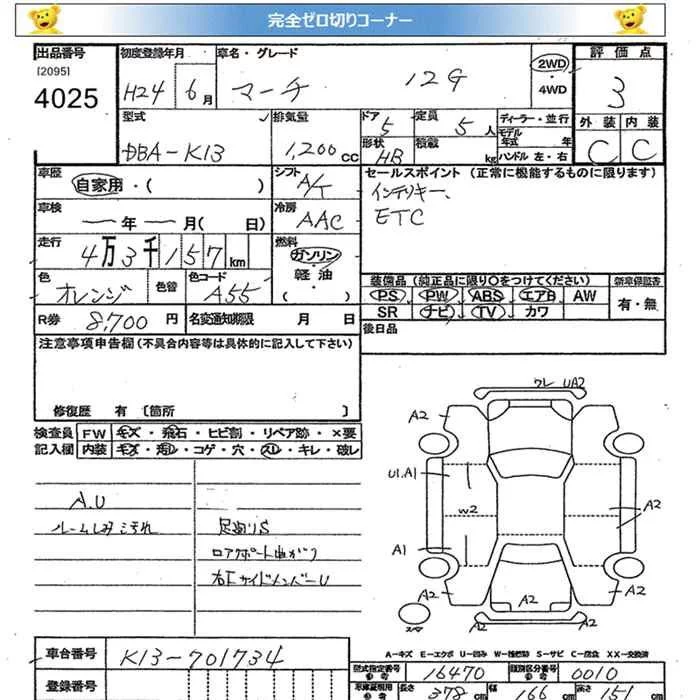 完全ゼロ切りコーナー
出品番号 初度登録年月 車名・グレード 2WD 評価点
[2095]
4025 H24 6月 マーチ 12G ・4WD 3
型式 排気量 ドア 定員 ディーラー・並行 外装 内装
DBA-K13 1,200cc 5 5人 モデル年式 年 C C
形状 HB 積載 kg ハンドル 左・右
車歴 シフト セールスポイント (正常に機能するものに限ります)
自家用・( ) A/T インテリキー、
車検 冷房 ETC
ー年ー月( 日) AAC
走行 燃料
4万3千157km ガソリン・軽油・( )
色 色替 色コード 装備品 (純正品に限り○をつけてください) 新車保証書
オレンジ A55 PS PW ABS エアB AW 有・無
R券 8,700円 名変通知期限 月 日 SR ナビ TV カワ
注意事項申告欄(不具合内容等は具体的に記入して下さい) 後日品
修復歴 有 [箇所 ]
検査員 FW キズ・飛石・ヒビ割・リペア跡・×要
記入欄 内装 キズ・汚レ・コゲ・穴・スレ・キレ・破レ
ワレ UA2
A2 A2
U1.A1
W2 A2
A1
A2 A2 A2
A2
スペア
A.U
ルームしみ汚れ 足廻りS
ロアサポート曲がり
右Fサイドメンバーu
A-キズ E-エクボ U-凹み W-補修跡 S-サビ C-腐食 XX-交換済
車台番号 K13-701734 型式指定番号 参考 16470 類別区分番号 参考 0010
登録番号 参考 長さ 378cm 幅 166cm 高さ 151cm